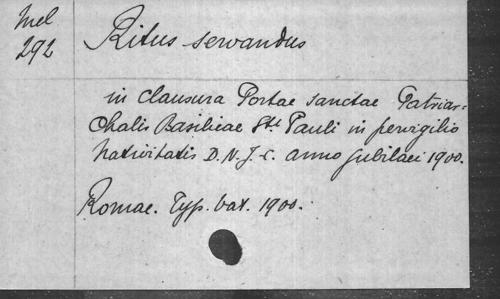 Mel
292
Ritus servandus
in clausura Portae sanctae Patriar-
chalis Basilicae Sti Pauli in pervigilio
Nativitatis D.N.J.C. anno Jubilaei 1900.
Romae. Typ. Vat. 1900.